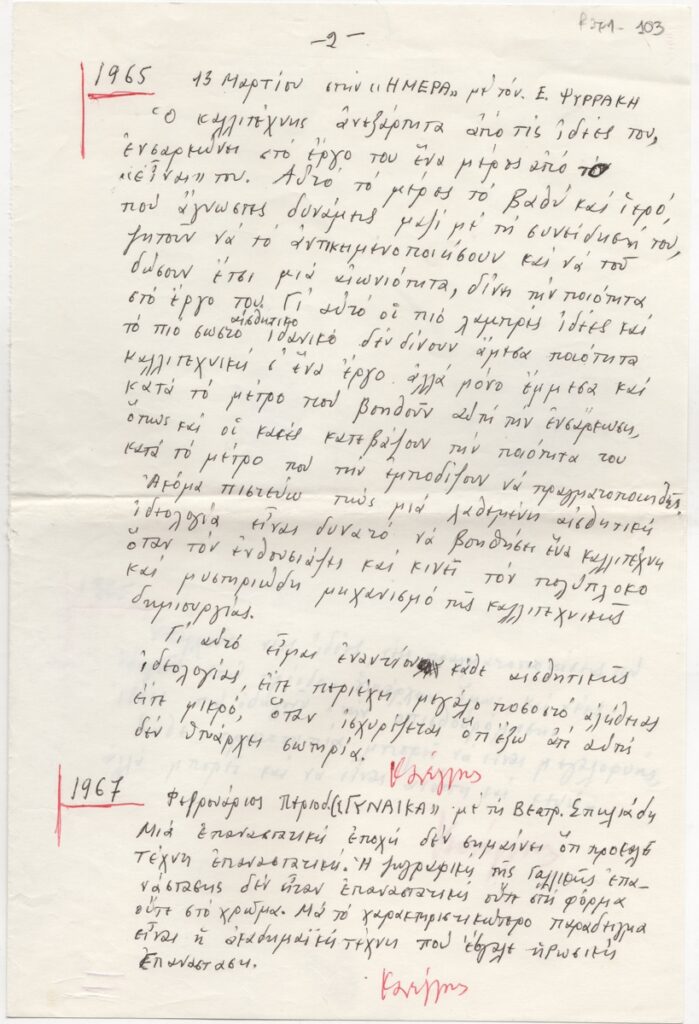 P371-103
-2-
1965 13 Μαρτίου στήν «ΗΜΕΡΑ» μέ τόν. Ε. ΨΥΡΡΑΚΗ
Ὁ καλλιτέχνης ἀνεξάρτητα ἀπό τίς ἰδέες του,
ἐνσαρκώνει στό ἔργο του ἕνα μέρος ἀπό τό
«εἶναι» του. Αὐτό τό μέρος τό βαθύ καί ἱερό,
πού ἄγνωστες δυνάμεις μαζί μέ τή συνείδησή του,
ζητοῦν νά τό ἀντικειμενοποιήσουν καί νά τοῦ
δώσουν ἔτσι μιά αἰωνιότητα, δίνει τήν ποιότητα
στό ἔργο του. Γι' αὐτό οἱ πιό λαμπρές ἰδέες καί
τό πιό σωστό αἰσθητικό ἰδανικό δέν δίνουν ἄμεσα ποιότητα
καλλιτεχνική σ' ἕνα ἔργο ἀλλά μόνο ἔμμεσα καί
κατά τό μέτρο πού βοηθοῦν αὐτή τήν ἐνσάρκωση,
ὅπως καί οἱ κακές κατεβάζουν τήν ποιότητα του
κατά τό μέτρο πού τήν ἐμποδίζουν νά πραγματοποιηθῆ.
Ἀκόμα πιστεύω πώς μιά λαθεμένη αἰσθητική
ἰδεολογία εἶναι δυνατό νά βοηθήσει ἕνα καλλιτέχνη
ὅταν τόν ἐνθουσιάζει καί κινεῖ τόν πολύπλοκο
καί μυστηριώδη μηχανισμό τῆς καλλιτεχνικῆς
δημιουργίας.
Γι' αὐτό εἶμαι ἐναντίον κάθε αἰσθητικῆς
ἰδεολογίας, εἴτε περιέχει μεγάλο ποσοστό ἀλήθειας
εἴτε μικρό, ὅταν ἰσχυρίζεται ὅτι ἔξω ἀπ' αὐτή
δέν ὑπάρχει σωτηρία.
Κανέλλης
1967 Φεβρουάριος Περιοδ. «ΓΥΝΑΙΚΑ» μέ τή Βεατρ. Σπηλιάδη
Μιά ἐπαναστατική ἐποχή δέν σημαίνει ὅτι προκαλεῖ
τέχνη ἐπαναστατική. Ἡ ζωγραφική τῆς Γαλλικῆς ἐπα-
νάστασης δέν ἦταν ἐπαναστατική οὔτε στή φόρμα
οὔτε στό χρῶμα. Μά τό χαρακτηριστικώτερο παράδειγμα
εἶναι ἡ ἀκαδημαϊκή τέχνη πού ἔβγαλε ἡ ρωσική
ἐπανάσταση.
Κανέλλης